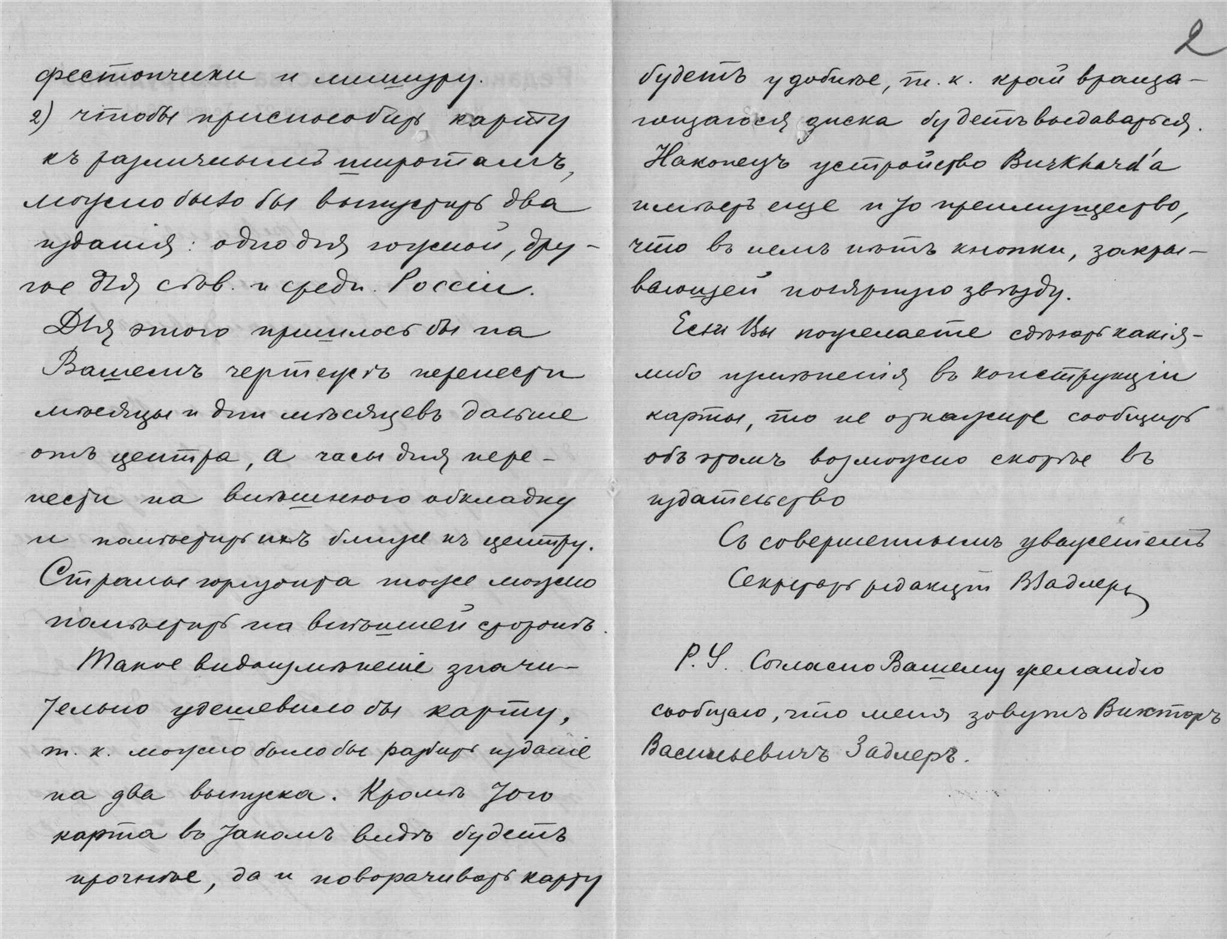 2
фестончики и мишуру.
2) чтобы приспособить карту
къ различнымъ широтамъ,
можно было бы выпустить два
изданія: одно для южной, дру-
гое для сѣв. и средн. Россіи.
Для этого пришлось бы на
Вашемъ чертежѣ перенести
мѣсяцы и дни мѣсяцевъ дальше
отъ центра, а часы дня пере-
нести на внѣшнюю обкладку
и помѣстить ихъ ближе къ центру.
Страны горизонта тоже можно
помѣстить на внѣшней сторонѣ.
Такое видоизмѣненіе значи-
тельно удешевило бы карту,
т. к. можно было бы разбить изданіе
на два выпуска. Кромѣ того
карта въ такомъ видѣ будетъ
прочнѣе, да и поворачивать карту
будетъ удобнѣе, т. к. край враща-
ющагося диска будетъ выдаваться.
Наконецъ устройство Burkhard'а
имѣетъ еще и то преимущество,
что въ немъ нѣтъ кнопки, закры-
вающей полярную звѣзду.
Если Вы пожелаете сдѣлать какія-
либо измѣненія въ конструкціи
карты, то не откажите сообщить
объ этомъ возможно скорѣе въ
издательство
Съ совершеннымъ уваженіемъ
Секретарь редакціи ВЗадлеръ
P.S. Согласно Вашему желанію
сообщаю, что меня зовутъ Викторъ
Васильевичъ Задлеръ.